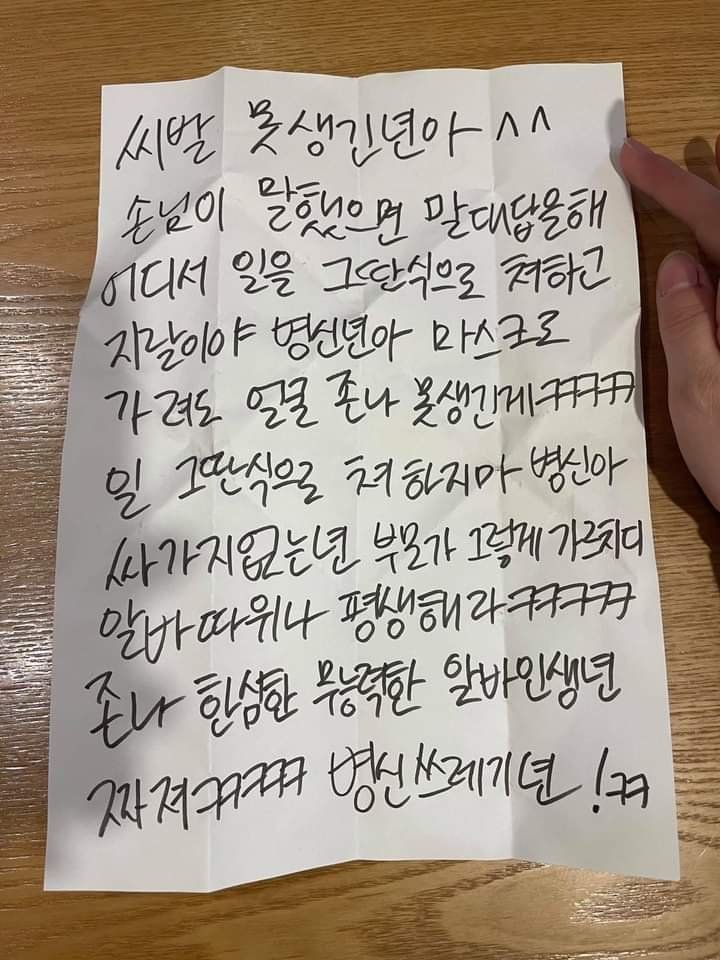 씨발 못생긴년아 ^^
손님이 말했으면 말대답을해
어디서 일을 그딴식으로 쳐하고
지랄이야 병신년아 마스크로
가려도 얼굴 존나 못생긴게ㅋㅋㅋㅋ
일 그딴식으로 쳐 하지마 병신아
싸가지없는년 부모가 그렇게 가르치디
알바따위나 평생해라ㅋㅋㅋㅋㅋ
존나 한심한 무능력한 알바인생년
짜져ㅋㅋㅋㅋ 병신쓰레기년 !ㅋㅋ